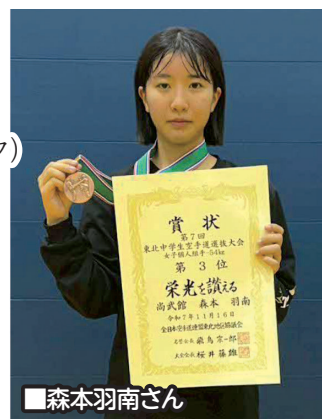 ク)
賞状
第7回
東北中学生空手道選抜大会
女子個人組手-54kg
第 3 位
栄光を讃える
尚武館 森本 羽南
令和7年11月16日
全日本空手道連盟東北地区協議会
桜井藤雄
■森本羽南さん